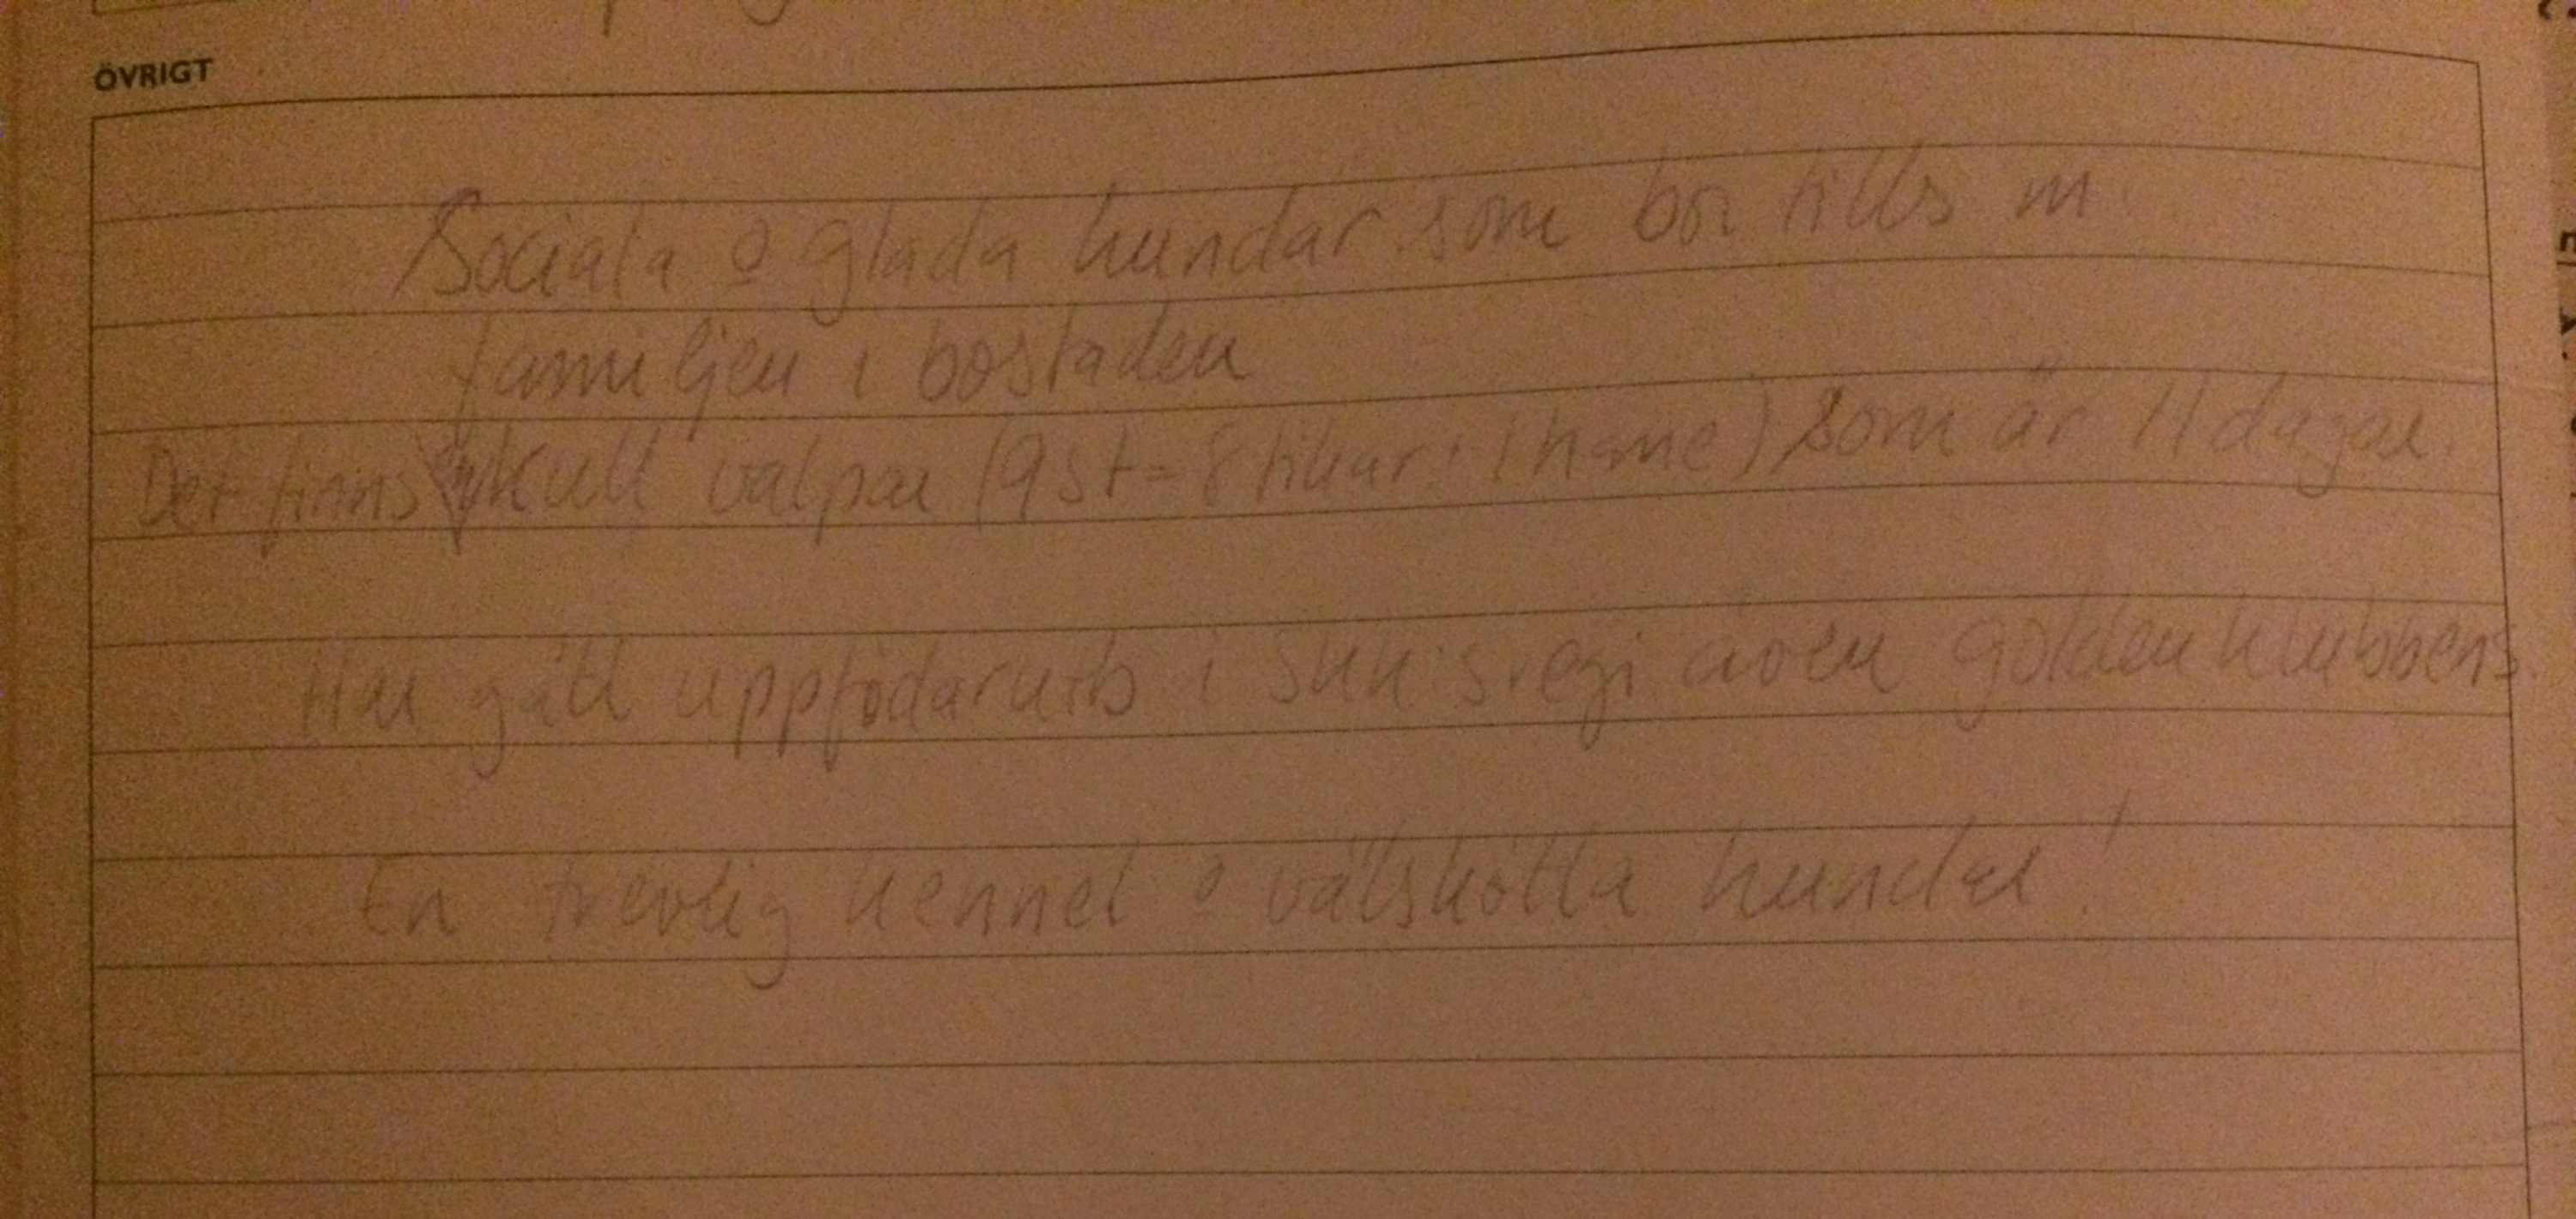 ÖVRIGT
Sociala o glada hundar som bor tills m.
familjen i bostaden
Det finns kull valpar (9st = 8 tikar + 1 hane) som är 11 dagar.
Har gått uppfödarutb i SKK:s regi även goldenklubbens.
En trevlig kennel o välskötta hundar!